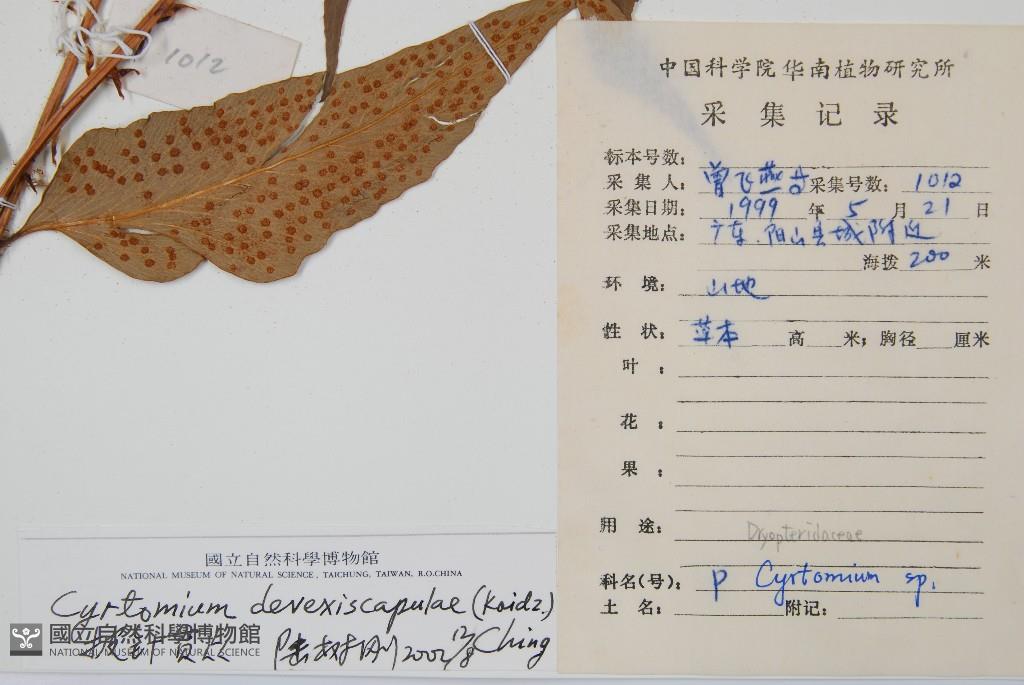 1012
中国科学院华南植物研究所
采集记录
标本号数:
采集人: 曾飞燕 采集号数: 1012
采集日期: 1999 年 5 月 21 日
采集地点: 广东.阳山县城附近
海拨 200 米
环境: 山地
性状: 草本 高 米; 胸径 厘米
叶:
花:
果:
用途:
Dryopteridaceae
科名(号): P Cyrtomium sp.
土名: 附记:
國立自然科學博物館
NATIONAL MUSEUM OF NATURAL SCIENCE, TAICHUNG, TAIWAN, R.O.CHINA
Cyrtomium devexiscapulae (Koidz.)
Ching
陸樹刚 2002
國立自然科學博物館
NATIONAL MUSEUM OF NATURAL SCIENCE